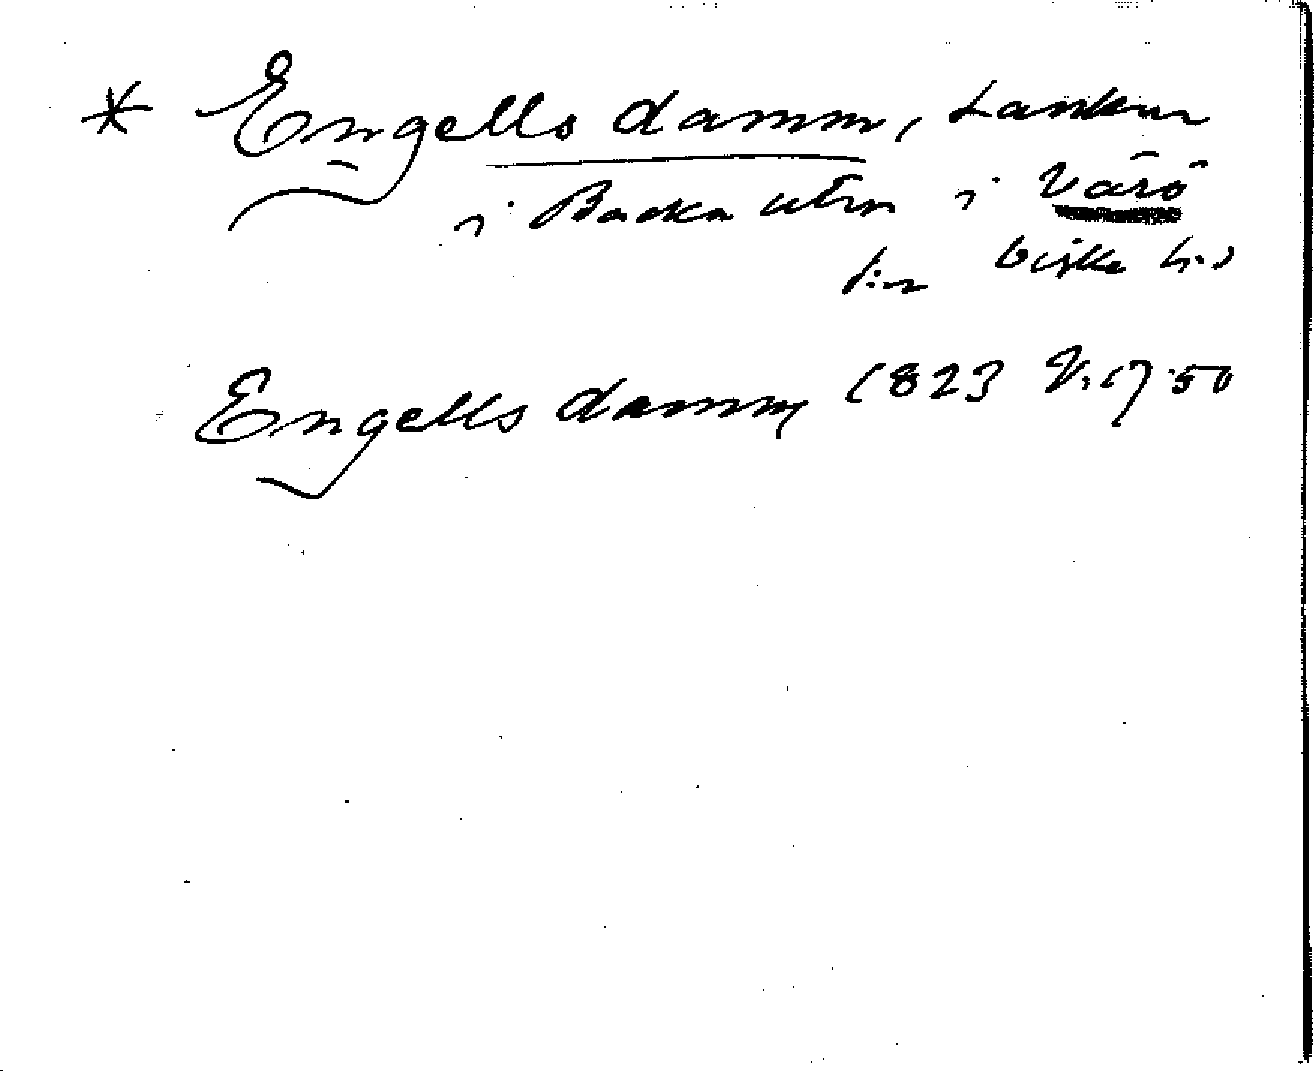 * Engells damm, Lankur
i Backa utm i Värö
sn Viske hd
Engells damm 1823 V:17:50